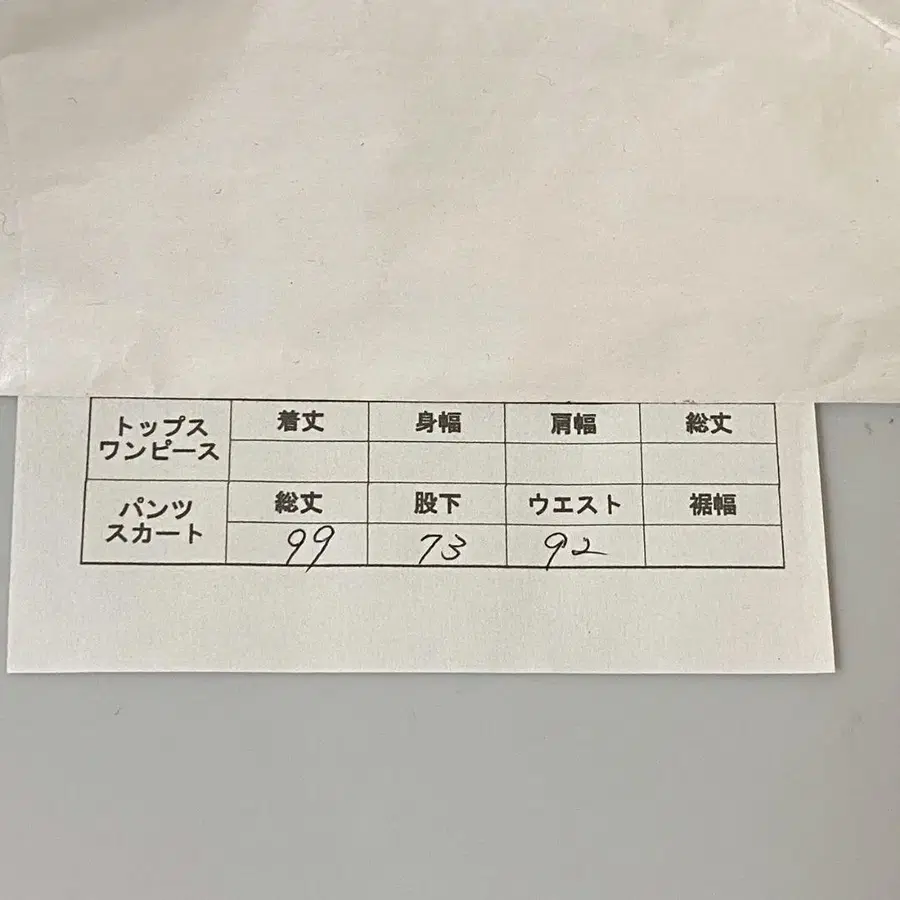 トップス
ワンピース
着丈 身幅 肩幅 総丈
パンツ
スカート
総丈 股下 ウエスト 裾幅
99 73 92